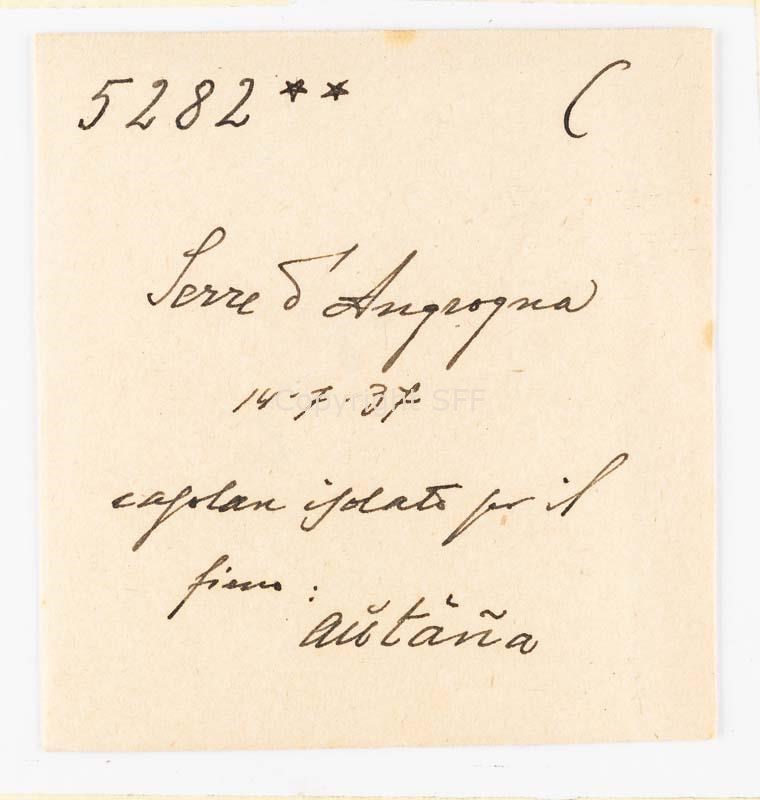 5282**
C
Serre d'Angrogna
14-7-37
Copyright SFF
casolar isolato per il
fieno:
aŭtäña